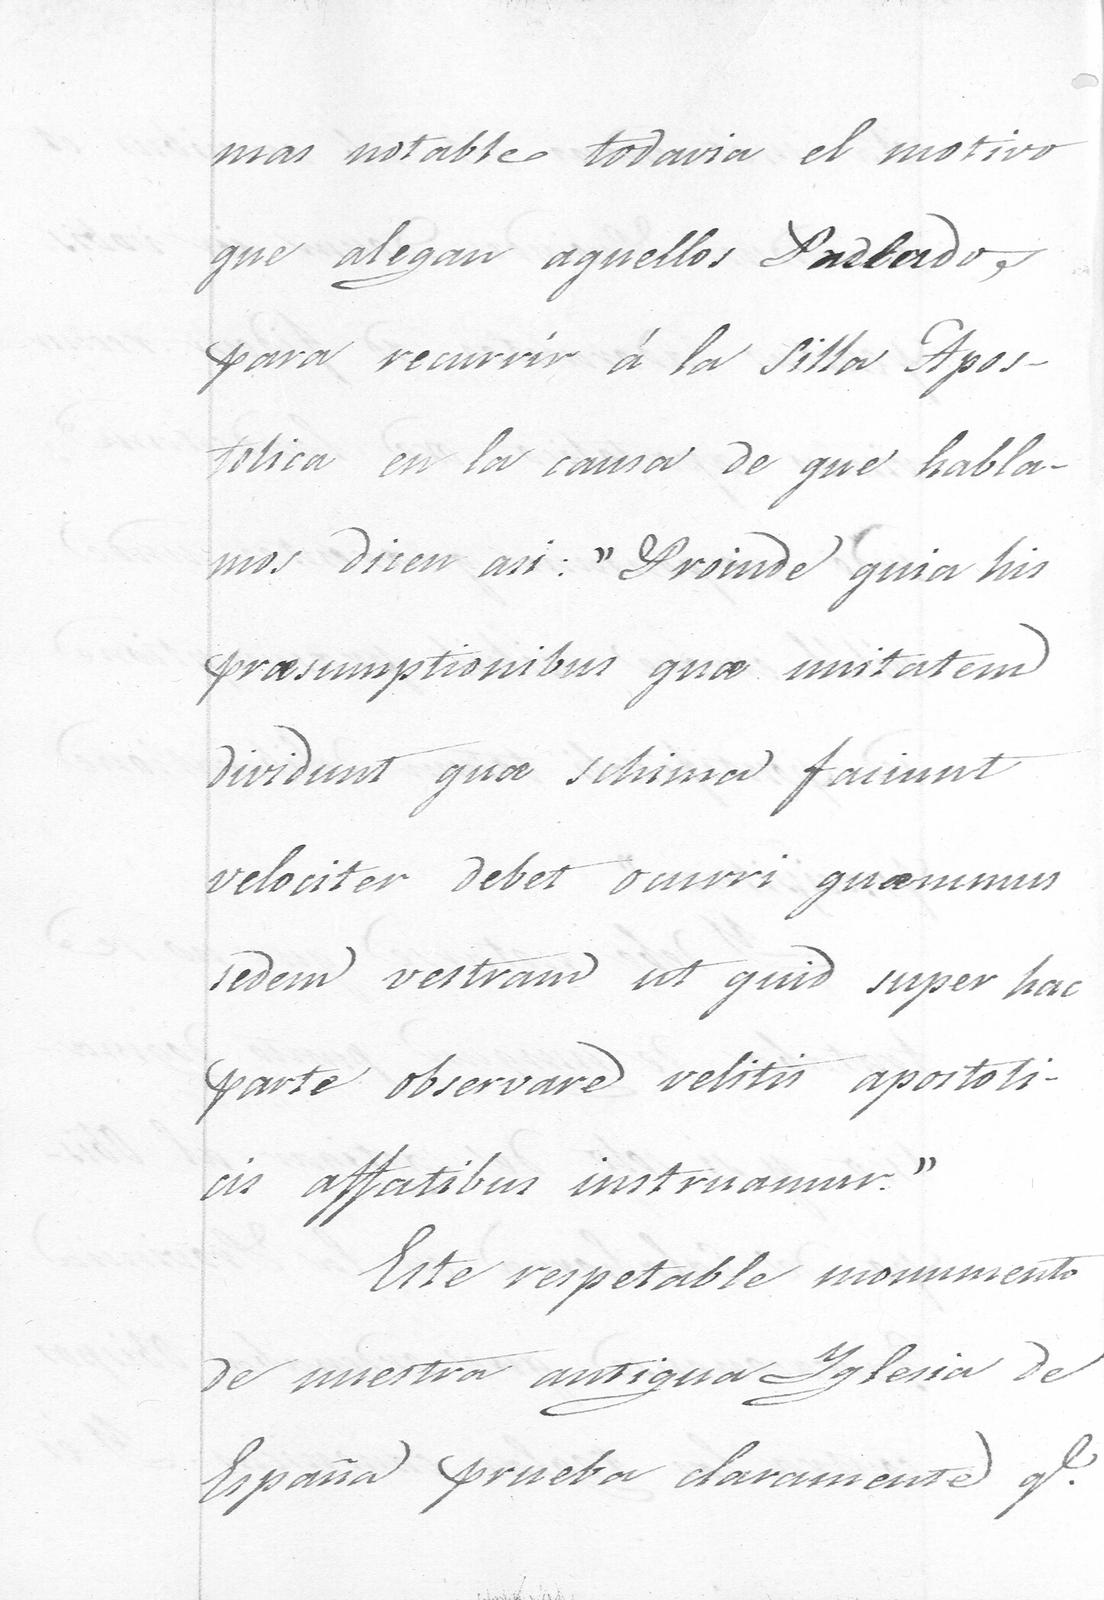 mas notable todavia el motivo
que alegan aquellos Prelados
para recurrir á la Silla Apos-
tolica en la causa de que habla-
mos dicen asi: "Proinde quia his
præsumptionibus quæ unitatem
dividunt quæ schima faciunt
velociter debet ocurri quæmmus
sedem vestram ut quid super hac
parte observare velitis apostoli-
cis affatibus instruamur."
Este respetable monumento
de nuestra antigua Yglesia de
España prueba claramente q.